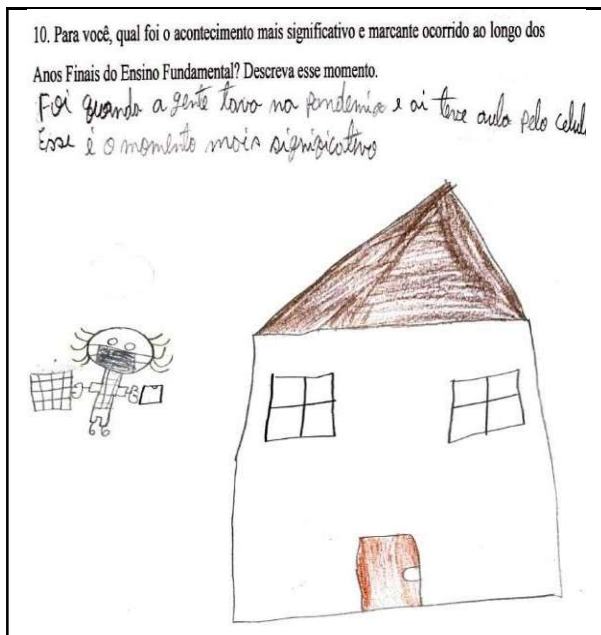 10. Para você, qual foi o acontecimento mais significativo e marcante ocorrido ao longo dos
Anos Finais do Ensino Fundamental? Descreva esse momento.
Foi quando a gente tava na pandemia e ai teve aula pelo celul
Esse é o momento mais significativo